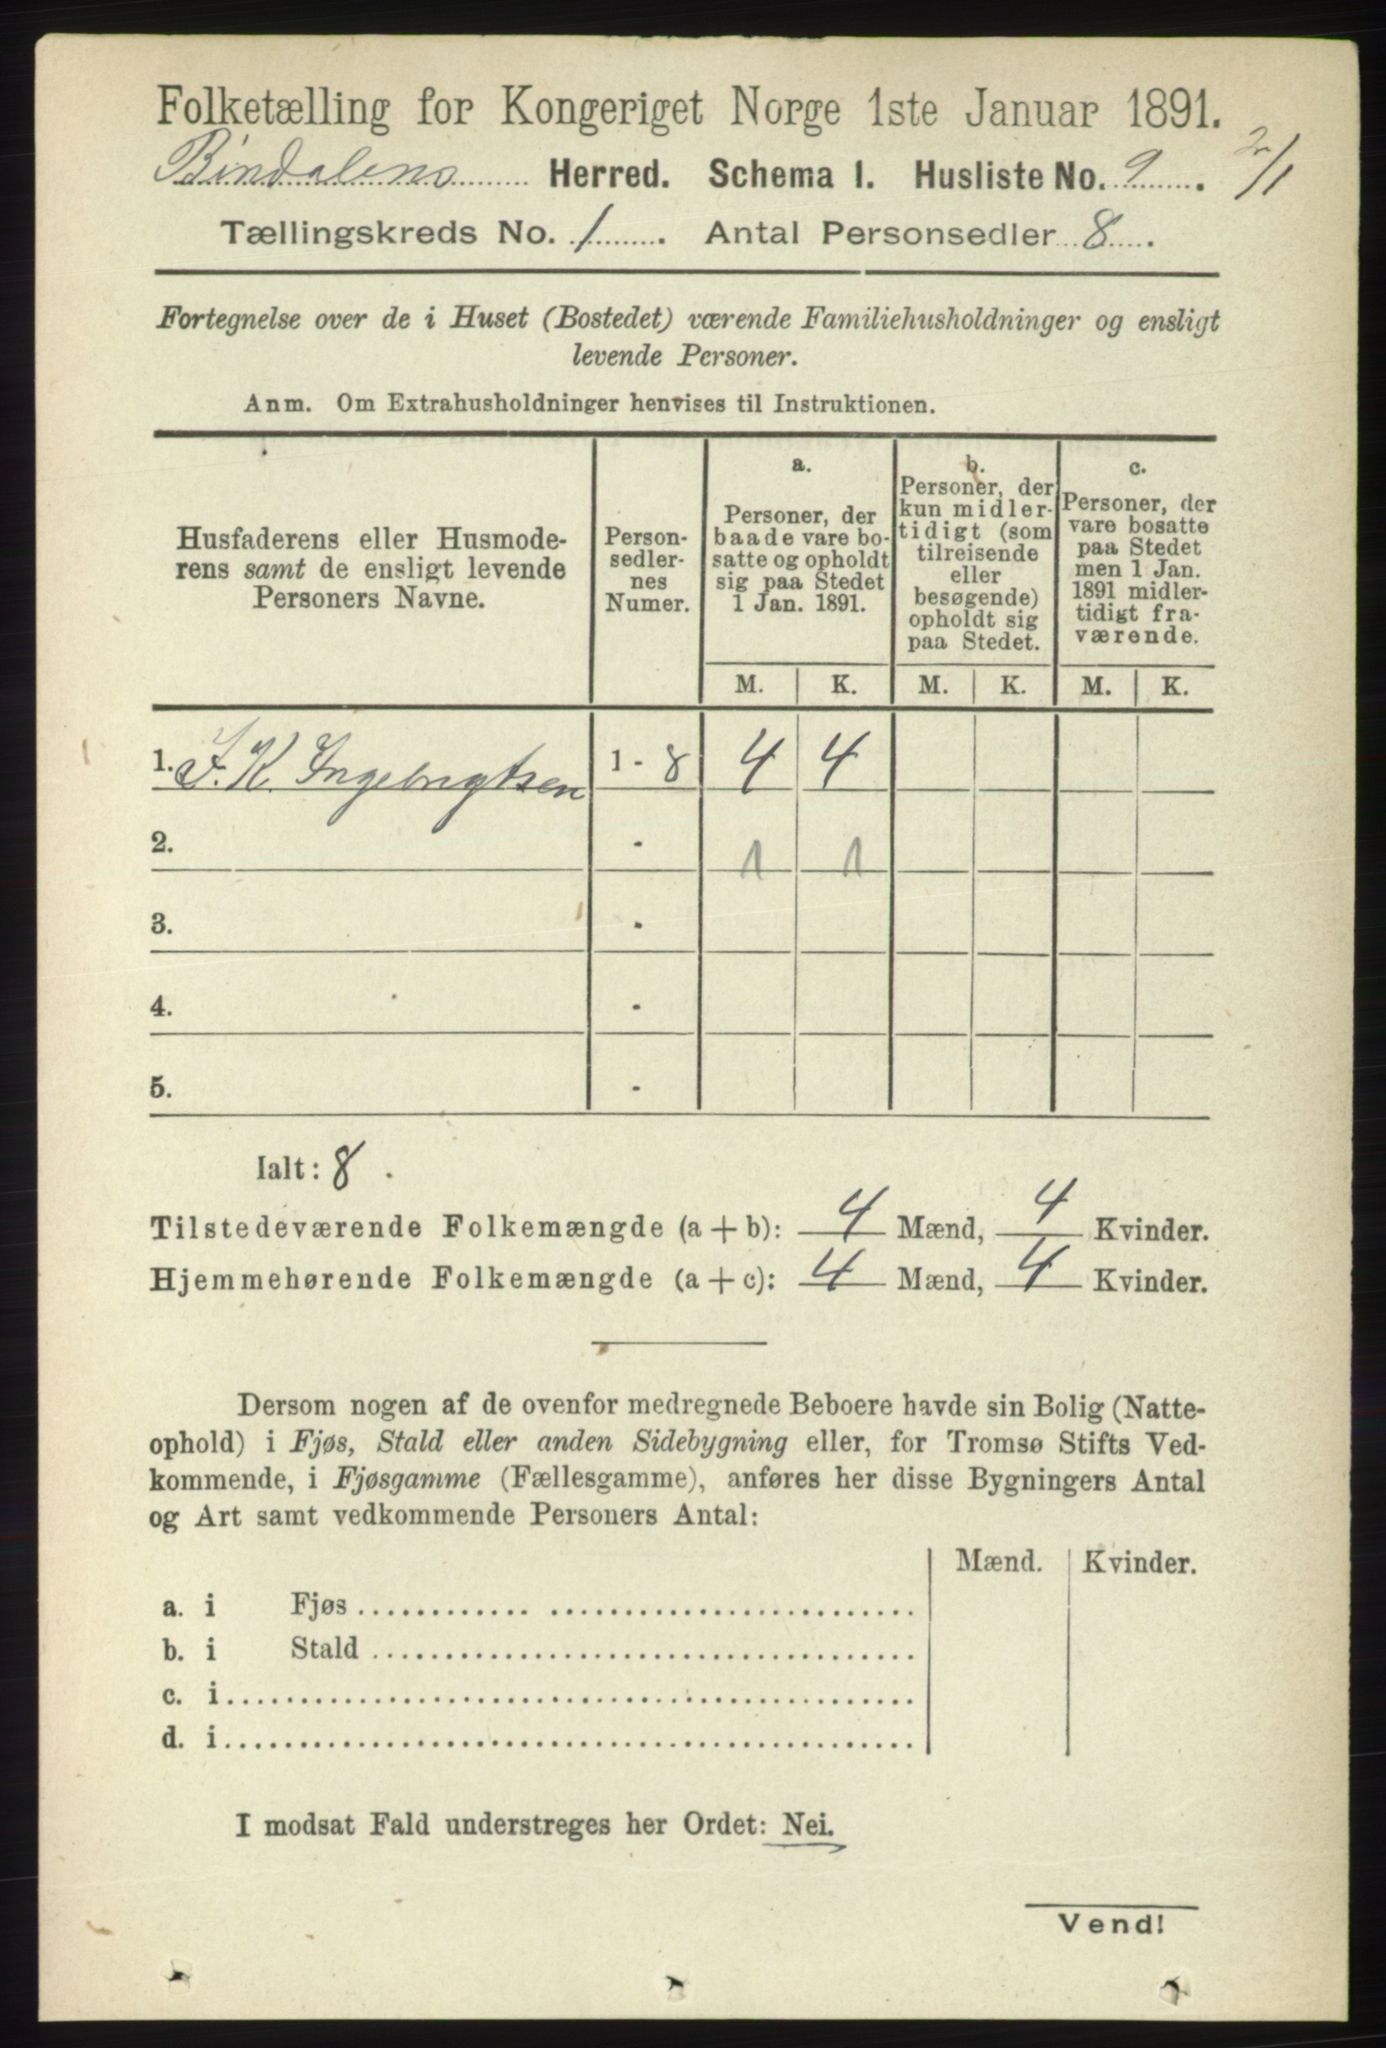 Folketælling for Kongeriget Norge 1ste Januar 1891.
Bindalens Herred. Schema I. Husliste No. 9.
Tællingskreds No. 1. Antal Personsedler 8.
Fortegnelse over de i Huset (Bostedet) værende Familiehusholdninger og ensligt
levende Personer.
Anm. Om Extrahusholdninger henvises til Instruktionen.
Husfaderens eller Husmode-
rens samt de ensligt levende
Personers Navne.
Person-
sedler-
nes
Numer.
a.
Personer, der
baade vare bo-
satte og opholdt
sig paa Stedet
1 Jan. 1891.
b.
Personer, der
kun midler-
tidigt (som
tilreisende
eller
besøgende)
opholdt sig
paa Stedet.
c.
Personer, der
vare bosatte
paa Stedet
men 1 Jan.
1891 midler-
tidigt fra-
værende.
M. K. M. K. M. K.
1. J. K. Ingebrigtsen 1 - 8 4 4
2. - 1 1
3. -
4. -
5. -
Ialt: 8.
Tilstedeværende Folkemængde (a + b): 4 Mænd, 4 Kvinder.
Hjemmehørende Folkemængde (a + c): 4 Mænd, 4 Kvinder.
Dersom nogen af de ovenfor medregnede Beboere havde sin Bolig (Natte-
ophold) i Fjøs, Stald eller anden Sidebygning eller, for Tromsø Stifts Ved-
kommende, i Fjøsgamme (Fællesgamme), anføres her disse Bygningers Antal
og Art samt vedkommende Personers Antal:
Mænd. Kvinder.
a. i Fjøs
b. i Stald
c. i
d. i
I modsat Fald understreges her Ordet: Nei.
Vend!